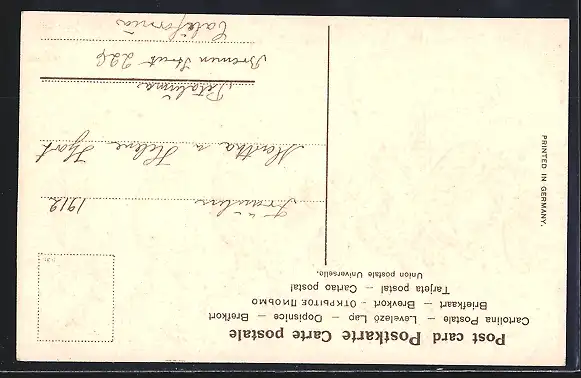 Post card Postkarte Carte postale
Cartolina Postale — Levelező Lap — Dopisnice — Brefkort
Briefkaart — Brevkort - ОТКРЫТОЕ ПИСЬМО
Tarjeta postal — Cartao postal
Union postale Universelle.
Fräulein 1912
Martha u Helene Hjort
Petaluma
Bremen Strut 226
California
PRINTED IN GERMANY.